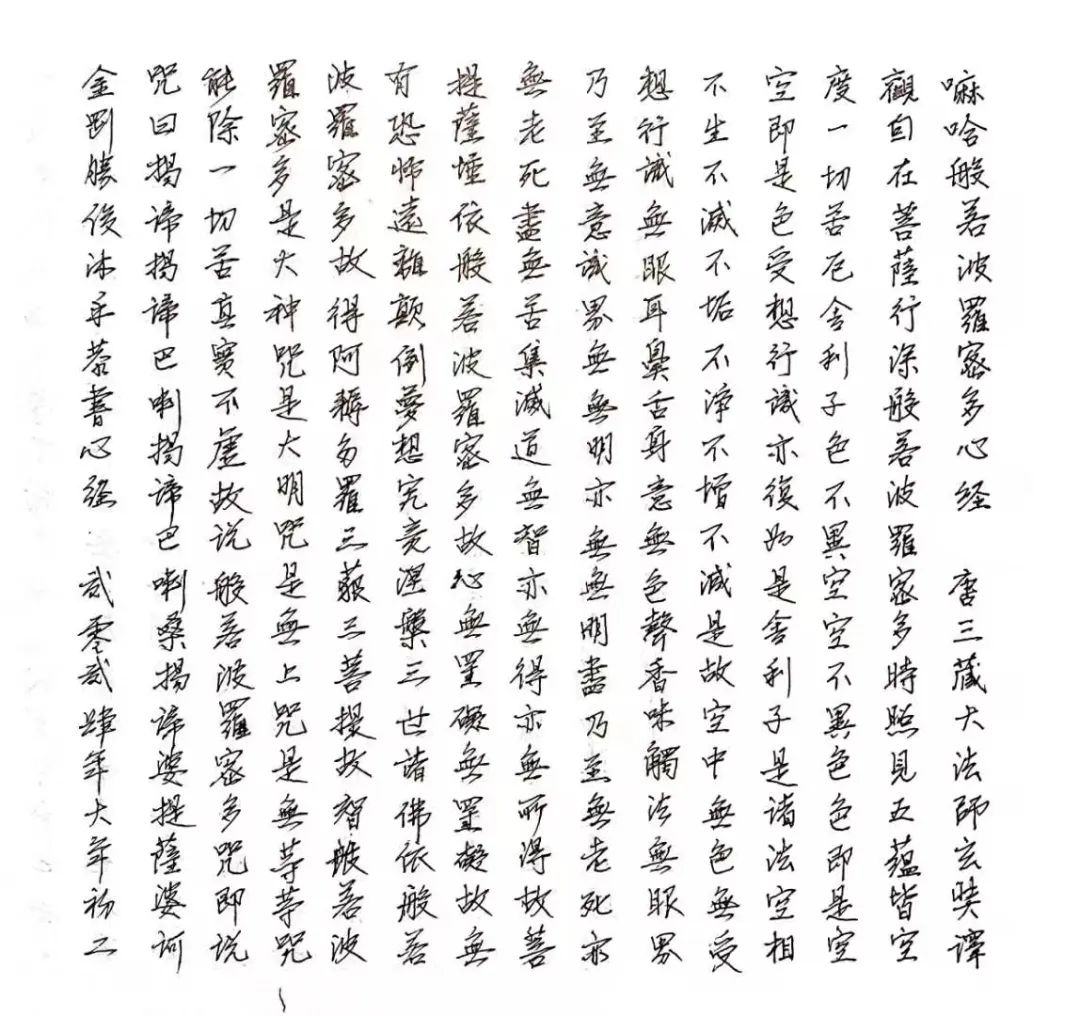 嘛哈般若波羅密多心经 唐三藏大法師玄奘譯
觀自在菩薩行深般若波羅密多時照見五蕴皆空
度一切苦厄舍利子色不異空空不異色色即是空
空即是色受想行識亦復如是舍利子是诸法空相
不生不滅不垢不淨不增不減是故空中無色無受
想行識無眼耳鼻舌身意無色聲香味觸法無眼界
乃至無意識界無無明亦無無明盡乃至無老死亦
無老死盡無苦集滅道無智亦無得亦無所得故菩
提薩埵依般若波羅密多故心無罣礙無罣礙故無
有恐怖遠離颠倒夢想究竟涅槃三世诸佛依般若
波羅密多故得阿耨多羅三藐三菩提故智般若波
羅密多是大神咒是大明咒是無上咒是無等等咒
能除一切苦真實不虛故说般若波羅密多咒即说
咒曰揭谛揭谛巴喇揭谛巴喇嗓揭谛婆提薩婆诃
金剛勝俊沐手恭書心經 贰零贰肆年大年初二